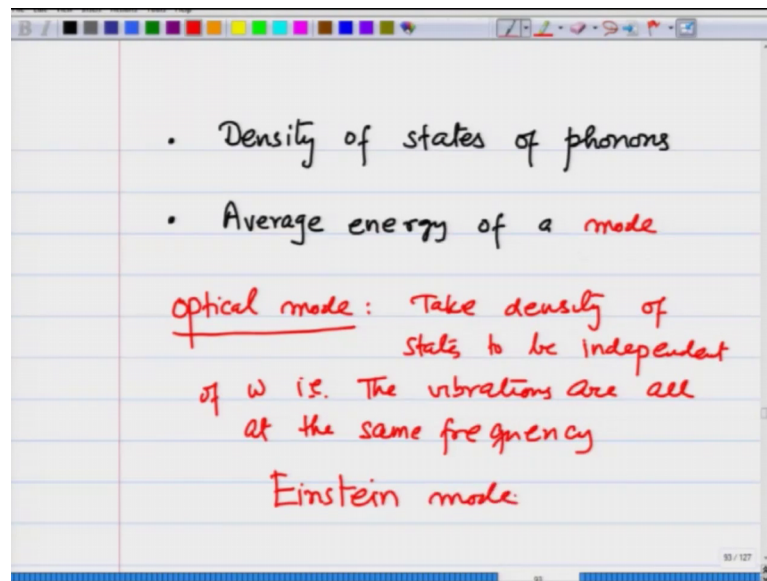 • Density of states of phonons
• Average energy of a mode
optical mode : Take density of
states to be independent
of ω ie. The vibrations are all
at the same frequency
Einstein mode.
93 / 127